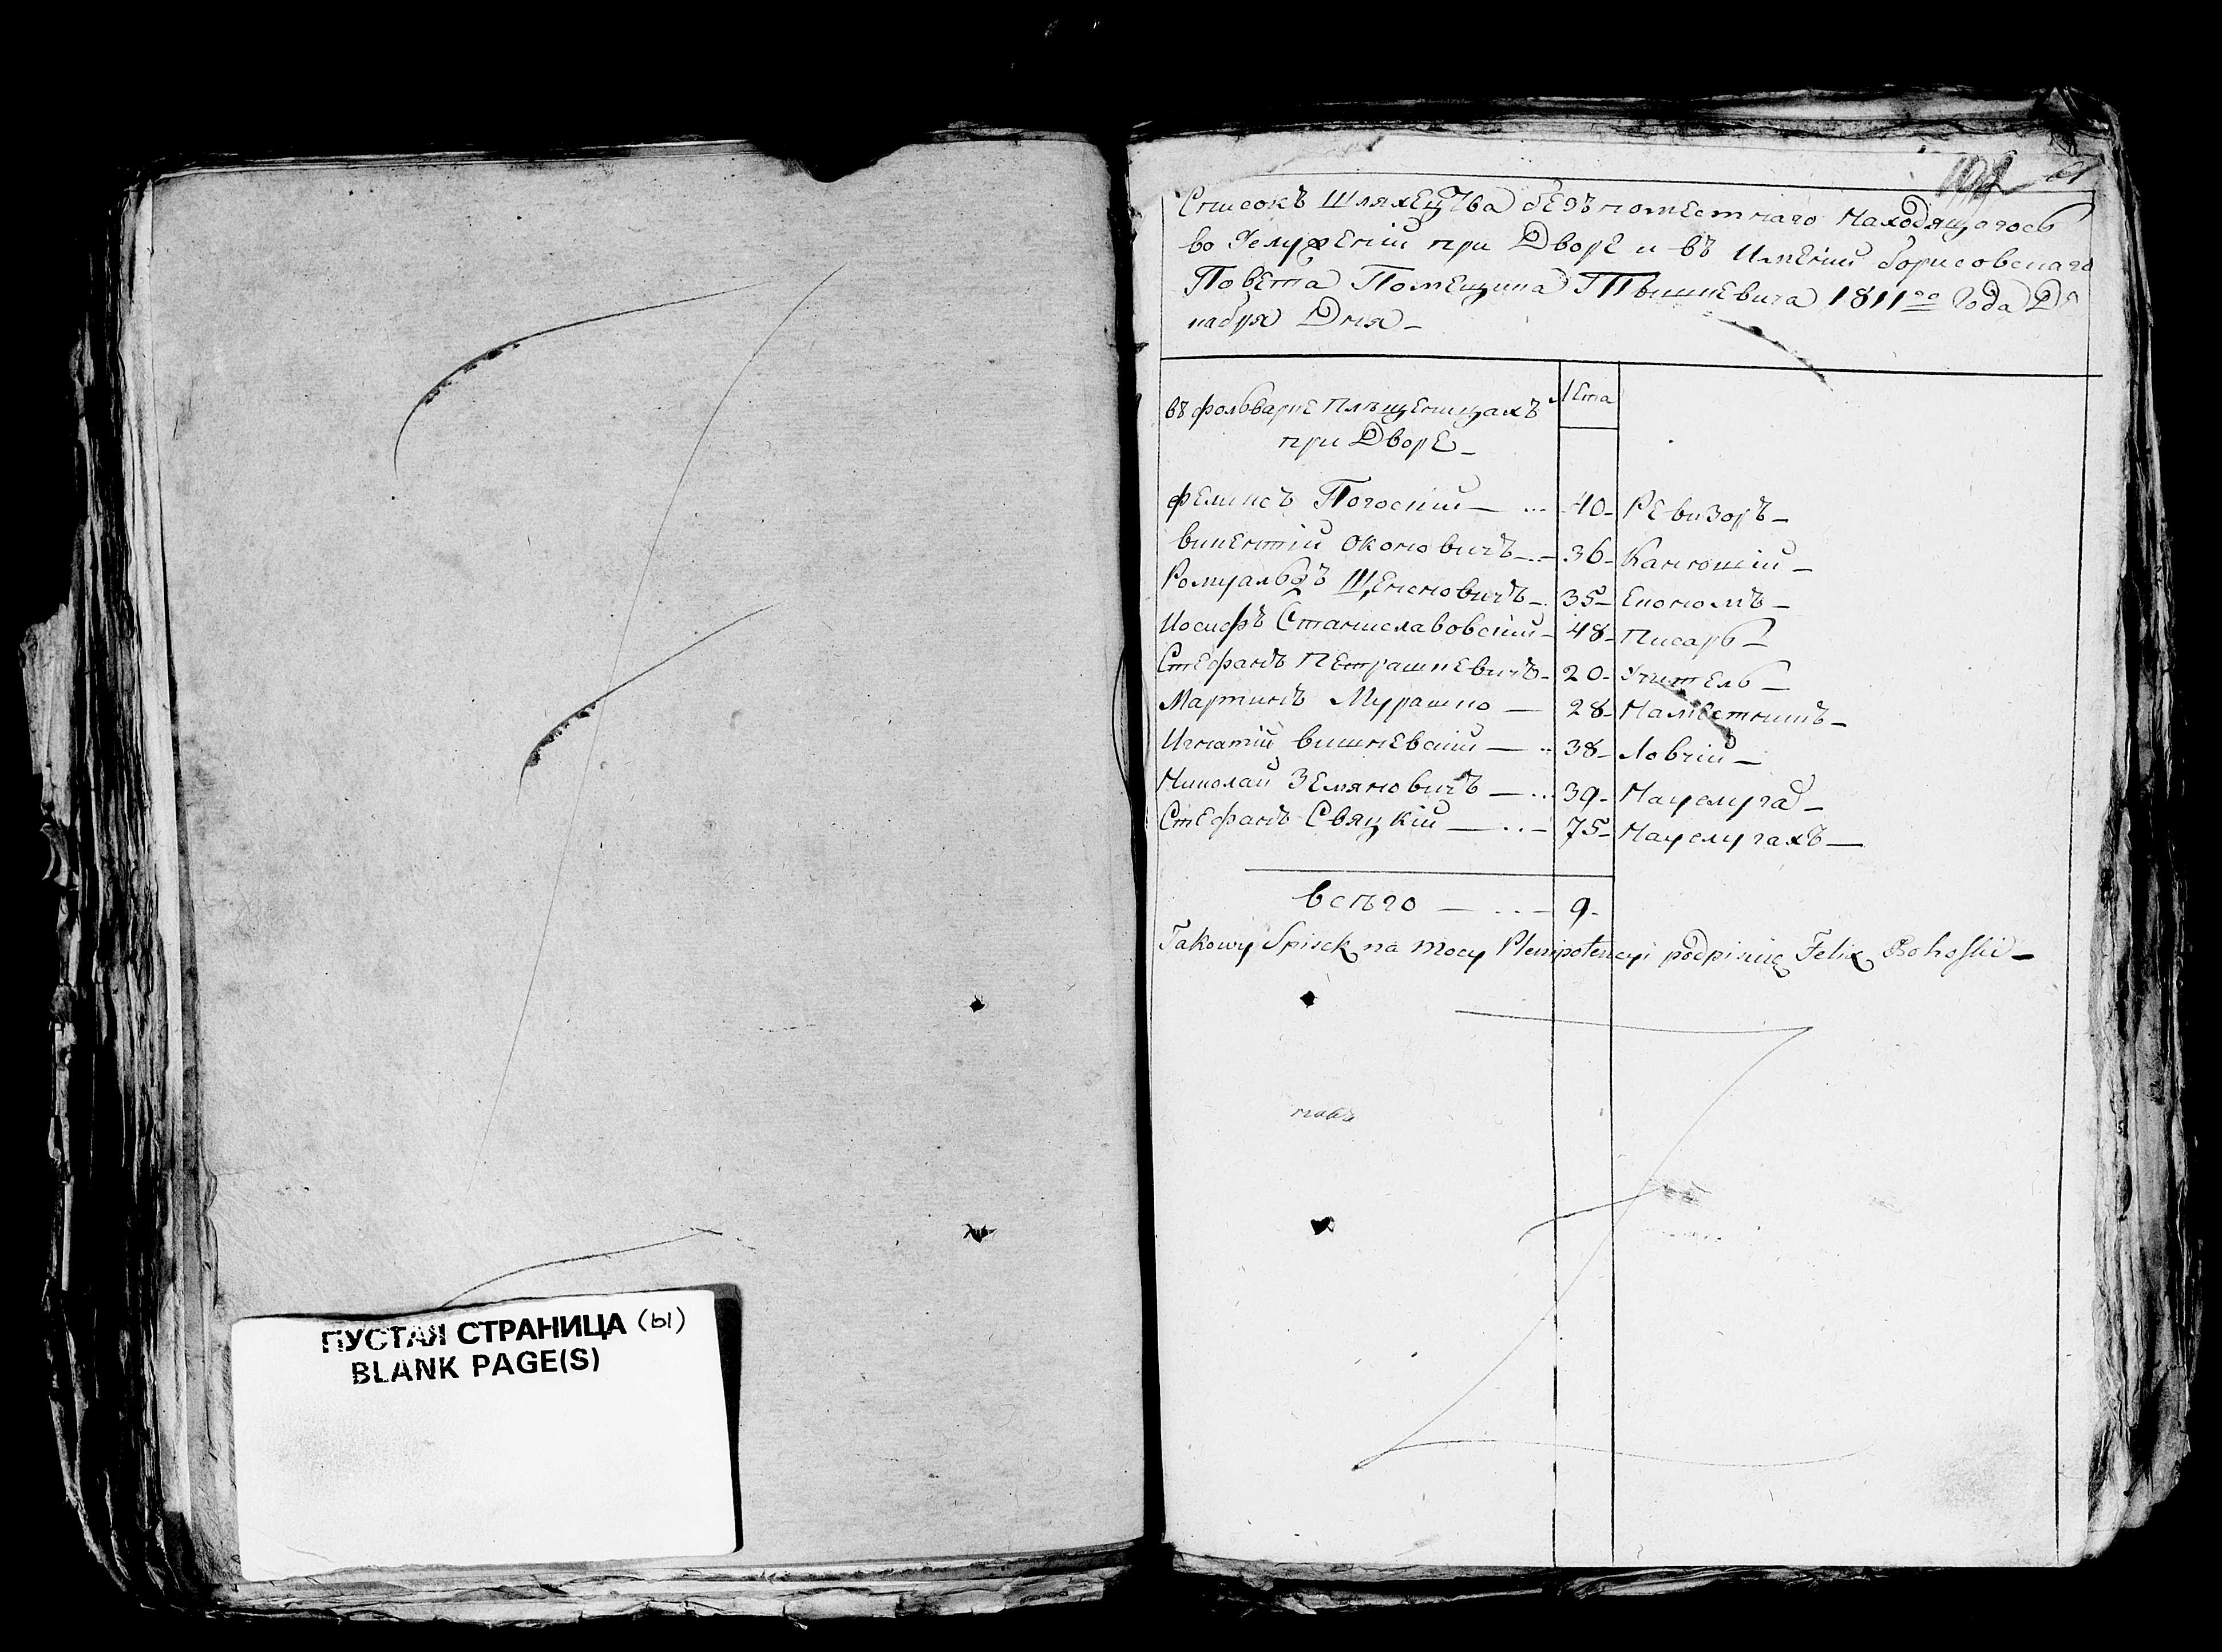 ПУСТАЯ СТРАНИЦА (ы)
BLANK PAGE(S)
Списокъ Шляхецтва безъпоместнаго находящагось
во Услужении при Дворе и въ Имении борисовскаго
Повета Помещика Тышкевича 1811го Года Де
кабря Дня
въ фольварке Плещеницахъ
при Дворе
Лета
Феликсъ Погоский 40 Ревизоръ
викентий Околовичъ 36 Канюший
Ромуальдъ Щенсновичъ 35 Економъ
Иосифъ Станиславовский 48 Писарь
Стефанъ Петрашкевичъ 20 Учитель
Мартинъ Мурашко 28 Наместникъ
Игнатий вишневский 38 Ловчий
Николай Земяновичъ 39 Науслуга
Стефанъ Свяцкий 75 Науслугахъ
всѣго 9
Takowy Spisek na mocy Plenipotencyi podpisuię Felix Pohoski